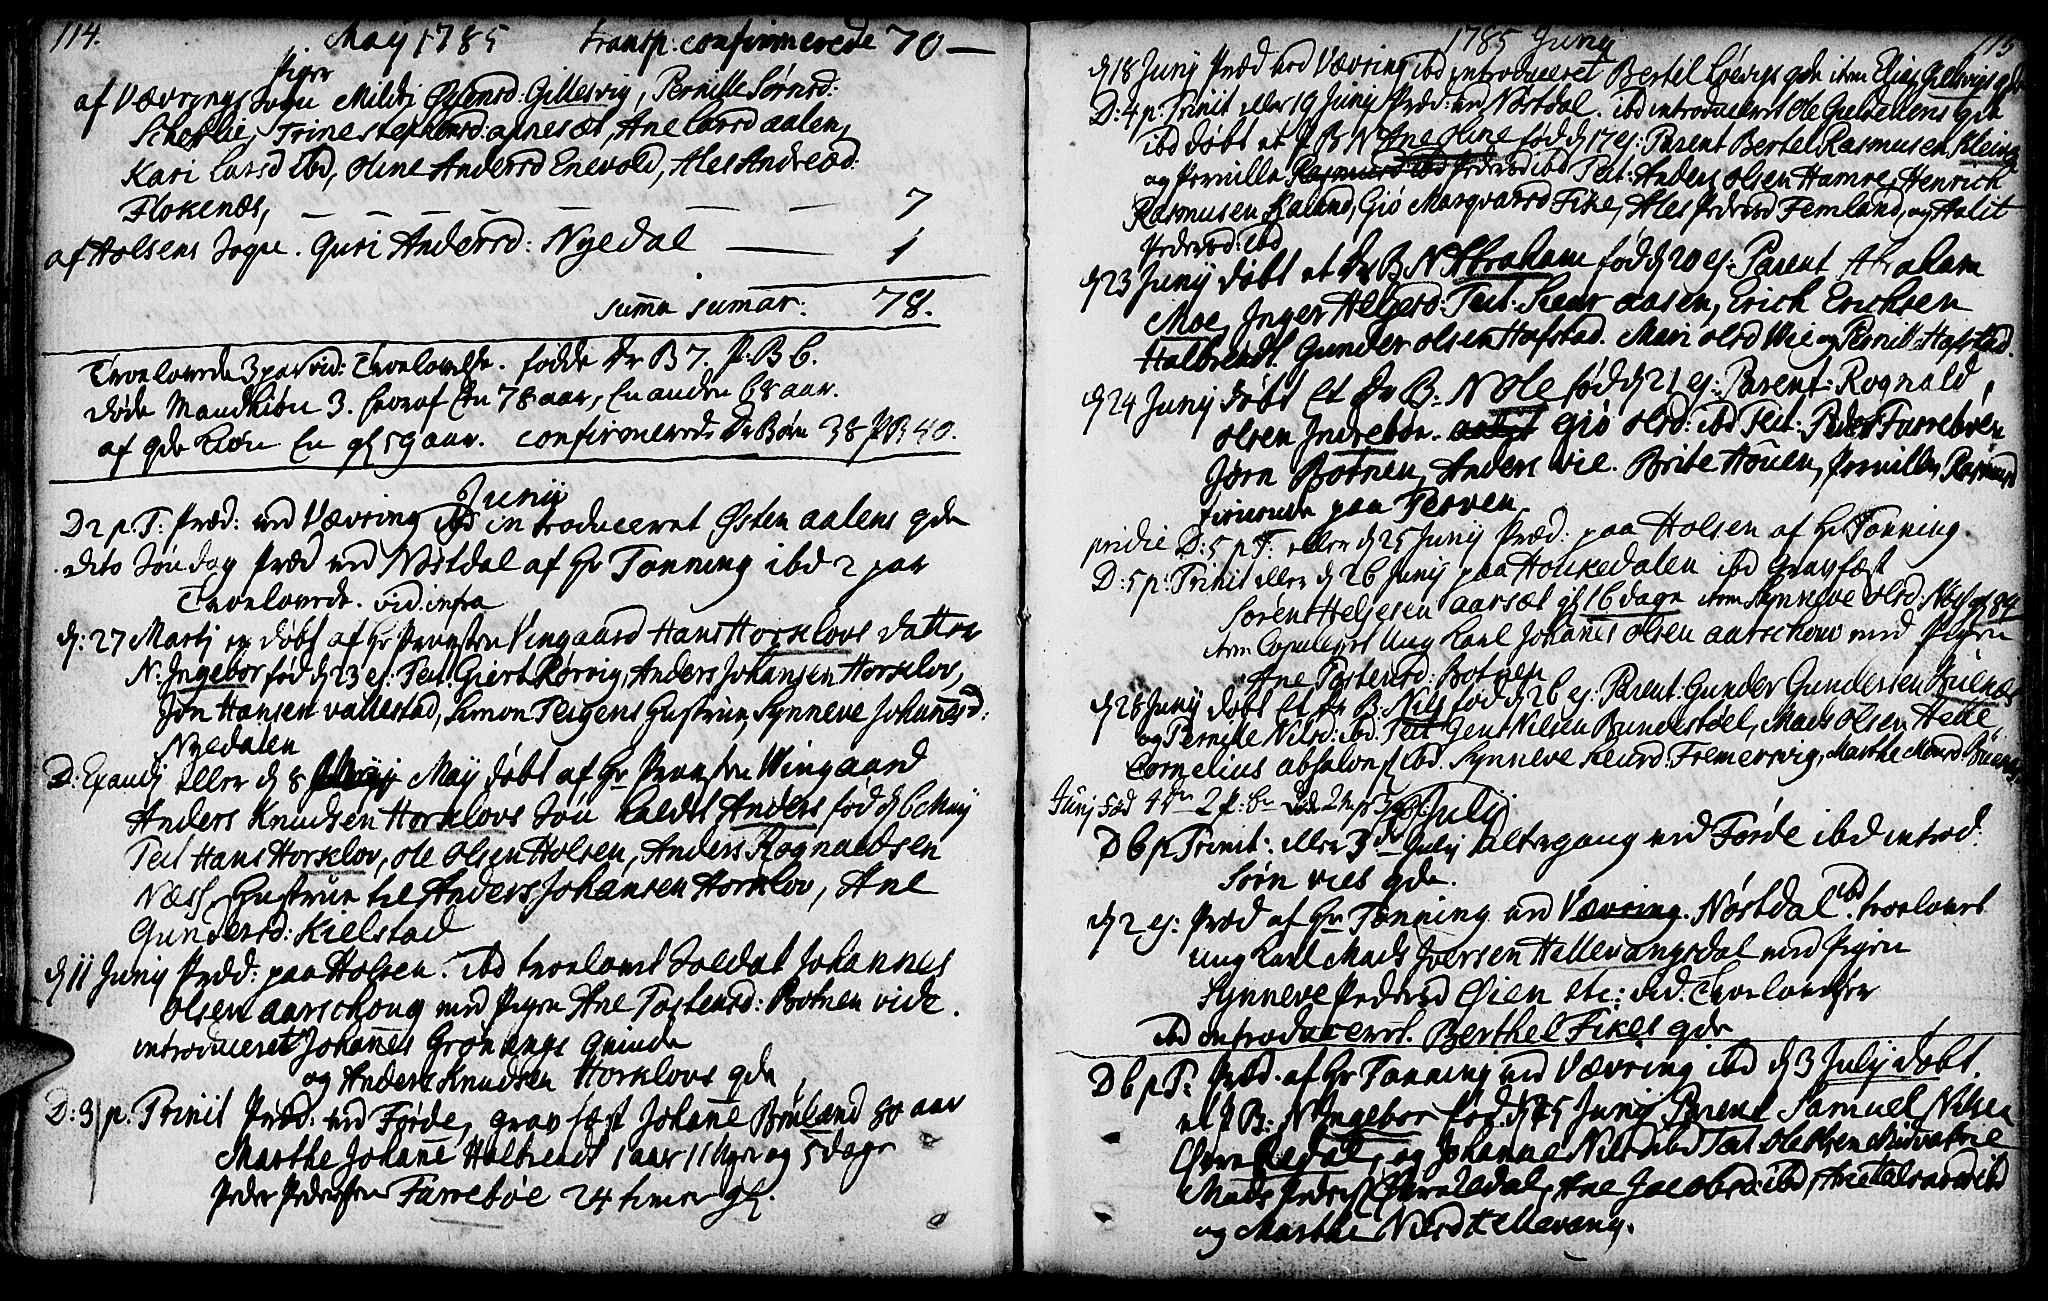 114.
Maij 1785 transp: confirmerede 70 —
piger
af Vævrings Sogn Mildri Øystensd: Gillesvig, Pernille Sørensd:
Trine Stephensd: Ane Larsd aalen,
Kari Larsd ibd, Oline Andersd Enevold, Ales Andreæd:
Flokenæs, — — — — — — — 7
af Holsens Sogn. Guri Andersd: Nyedal — 1
summa sumar: 78.
Troelovede 3 par vid: Troelovelse. fødde Dr B 7. P. B 6.
døde Mandkiøn 3. hvoraf En 78 aar, En anden 68 aar.
af qde kiøn En gl 59 aar. confirmerede Dr Børn 38 P B 40.
Junij
D 2 p. T: Præd: ved Vævring ibd introduceret Østen aalens qde
dito Søndag Præd ved Nøstdal af Hr Tonning ibd 2 par
Troelovede. vid. infra
d: 27 Martj er døbt af Hr Provsten Vingaard Hans Horsklovs datter
N: Ingebor fød d 23 ej: Test Giert Rørvig, Anders Johansen Horsklov,
Jon Hansen vallestad, Simon Teigens Hustrue, Synneve Johanesd:
Nyedalen
D: Exaudj eller d 8 Maij døbt af Hr Provsten Wingaard
Anders Knudsen Horsklovs Søn kaldet Anders fød d 6 Maij
Test Hans Horsklov, Ole Olsen Holsen, Anders Rognaldsen
Næss, Hustrue til Anders Johansen Horsklov, Ane
Gundersd: Kielstad
d 11 Junij Præd: paa Holsen. ibd troelovet Soldat Johannes
Olsen aarschoug med Pigen Ane Tostensd: Botnen vide.
introduceret Johanes Grønings Qvinde
og Anders Knudsen Horsklovs qde
D: 3 p. Trinit Præd. ved Førde, grav fæst Johane Bruland 80 aar
Marthe Johane Halbrendt 1 aar 11 Uger og 5 dage
Peder Pedersen Farsebøe 24 timer gl.
1785 Junij 115
d 18 Junij Præd ved Vævring ibd introduceret Bertel qde item Elias qde
D: 4 p: Trinit eller 19 Junij Præd: ved Nøstdal. ibd introduceret Ole qde
ibd døbt et P B N Ane Oline fød d 17 ej: Parent Bertel Rasmusen Kleiva
og Pernille Pedersd ibd Test: Anders Olsen Hamre, Henrich
Rasmusen Kaland, Giø Marqvardsd Fike, Ales Pedersd Femland, og Malit
Pedersd: ibd
d 23 Junij døbt et Dr B. N Abraham fød d 20 ej: Parent Abraham
Moe, Inger Helgesd: Test: Siur aasen, Erich Erichsen
Halbrendt Gunder Olsen Hafstad. Mari Olsd Vie og Pernille Hafstad.
d 24 Junij døbt Et Dr B: N Ole fød d 21 ej: Parent: Rognald
Olsen Indrebøe. Giø Olsd: ibd Test: Peder Farsebøe,
Jørn Botnen, Anders vie. Brite Høuen, Pernille Rasmusd
tienende paa Terven
pridie D: 5 p T: eller d 25 Junij Præd: paa Holsen af Hr Tonning
D: 5 p: Trinit eller d 26 Junij paa Houkedalen ibd Gravfæst
Søren Helgesen aarsæt gl 16 dage item Synneve Olsd: gl 84
item Copuleret Ung karl Johanes Olsen aarschow med Pigen
Ane Tostensd: Botnen
d 28 Junij døbt Et Dr B. Nils fød d 26 ej: Parent Gunder Gundersen Buenæs
og Pernille Nilsd: ibd Test Jens Nilsen Bundestøel, Mads Olsen Helle
Cornelius absalons: ibd. Synneve Siursd: Fremersvig, Marthe Monsd: Buenæs
Julij
D 6 p Trinit: eller 3de Julij altergang ved Førde ibd introd.
Sørn vies qde.
d 2 ej: Præd af Hr Tonning ved Nøstdal ibd troelovet
Ung karl Mads Iversen Hellevangsdal med Pigen
Synneve Pedersd Øien etc: vid: Troelovelser
ibd introduceret. Berthel Fikes qde
D 6 p T: Præd. af Hr Tonning ved Vævring ibd d 3 Julij døbt.
et P B: N Ingebor fød d 25 Junij Parent Samuel Nilsen
og Johanne Nilsd ibd Test Ole Olsen
Mads Peders: Ane Jacobsd: ibd, ibd
og Marthe Nilsd Hellevang.